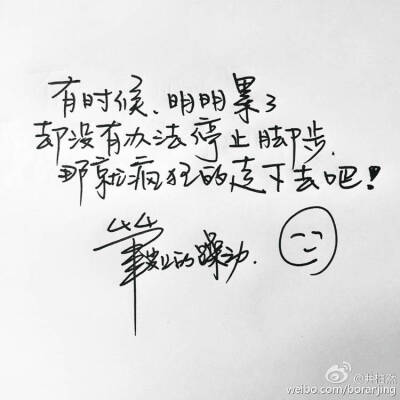 有时候、明明累了
却没有办法停止脚步.
那就疯狂的走下去吧！
的躁动.
@井柏然
weibo.com/boranjing